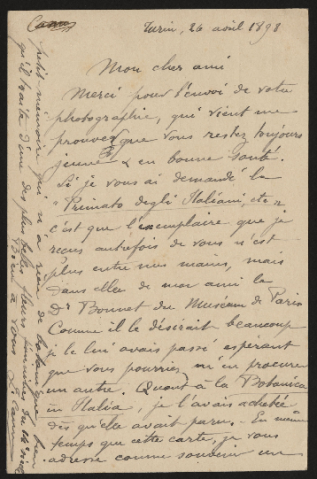 Turin, 26 avril 1898
Mon cher ami
Merci pour l'envoi de votre
photographie, qui vient me
prouver que vous restez toujours
jeune & en bonne santé.
Si je vous ai demandé la
"Primato degli Italiani, etc"
c'est que l'exemplaire que je
reçus autrefois de vous n'est
plus entre mes mains, mais
dans celles de mon ami le
Dr Bonnet du Muséum de Paris
Comme il le désirait beaucoup
je le lui avais passé espérant
que vous pourriez m'en procurer
un autre. Quant à la Botanica
in Italia, je l'avais achetée
dès qu'elle avait paru. En même
temps que cette carte, je vous
adresse comme souvenir un
petit mémoire qui n'a rien de botanique, bien
qu'il traite d'une des plus belles fleurs
Bien à vous